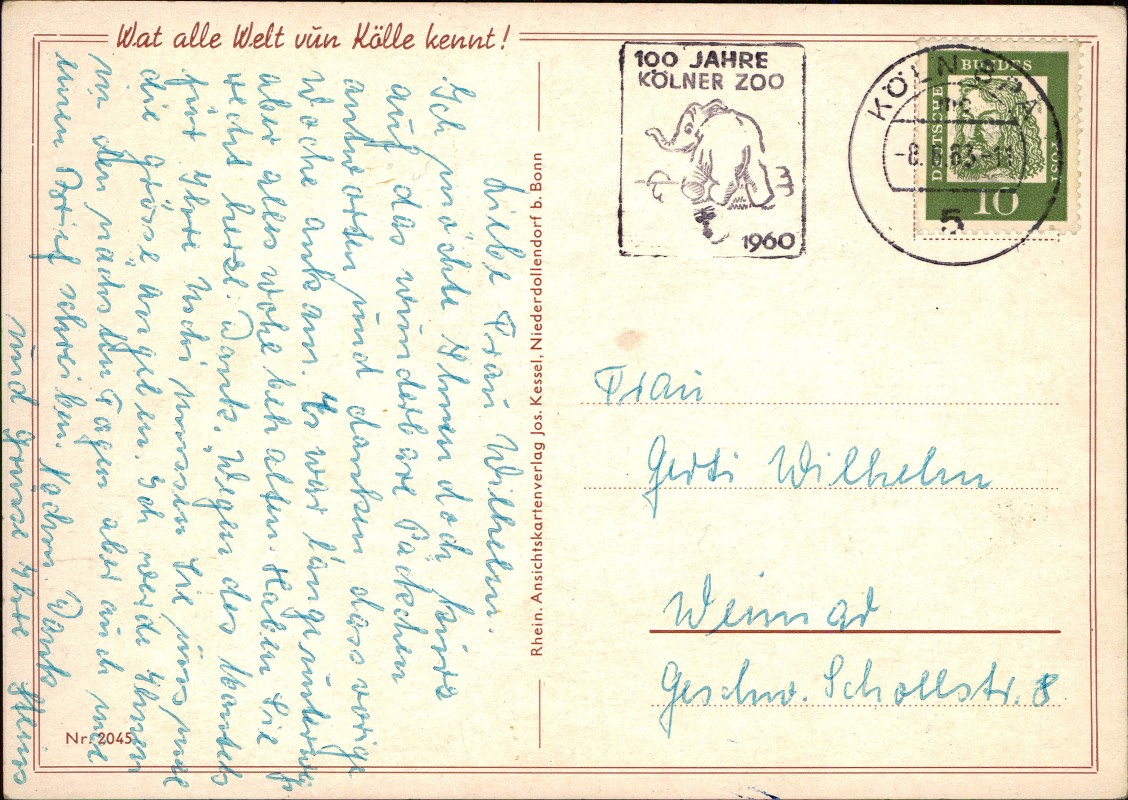 Wat alle Welt vun Kölle kennt!
Liebe Frau Wilhelm.
Ich möchte Ihnen doch kurz
auf das wunderbare Päckchen
antworten und danken das vorige
Woche ankam. Es war lange unterwegs
aber alles wohl behalten. Haben Sie
recht herzl. Dank. Wegen des Mantels
für Ihre müssen Sie uns mal
die Grösse angeben. Ich werde Ihnen
in den nächsten Tagen aber auch mal
einen Brief schreiben. Nochm. Dank
und Grüsse Ihre
Nr. 2045
Rhein. Ansichtskartenverlag Jos. Kessel, Niederdollendorf b. Bonn
100 JAHRE
KÖLNER ZOO
1960
KÖLN
5
DEUTSCHE BUNDESPOST
10
Frau
Gerti Wilhelm
Weimar
Geschw. Schollstr. 8